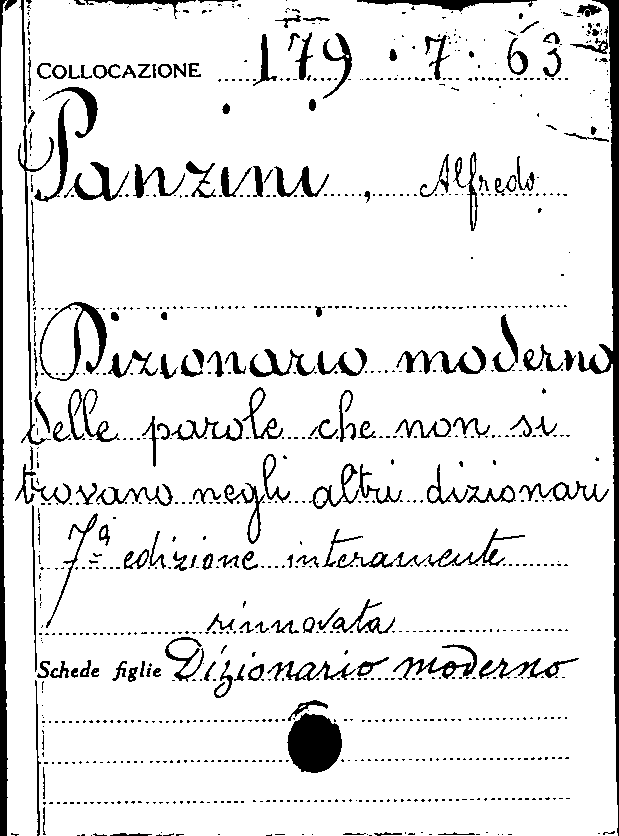 COLLOCAZIONE 179.7.63
Panzini, Alfredo
Dizionario moderno
delle parole che non si
trovano negli altri dizionari
7ª edizione interamente
rinnovata
Schede figlie Dizionario moderno